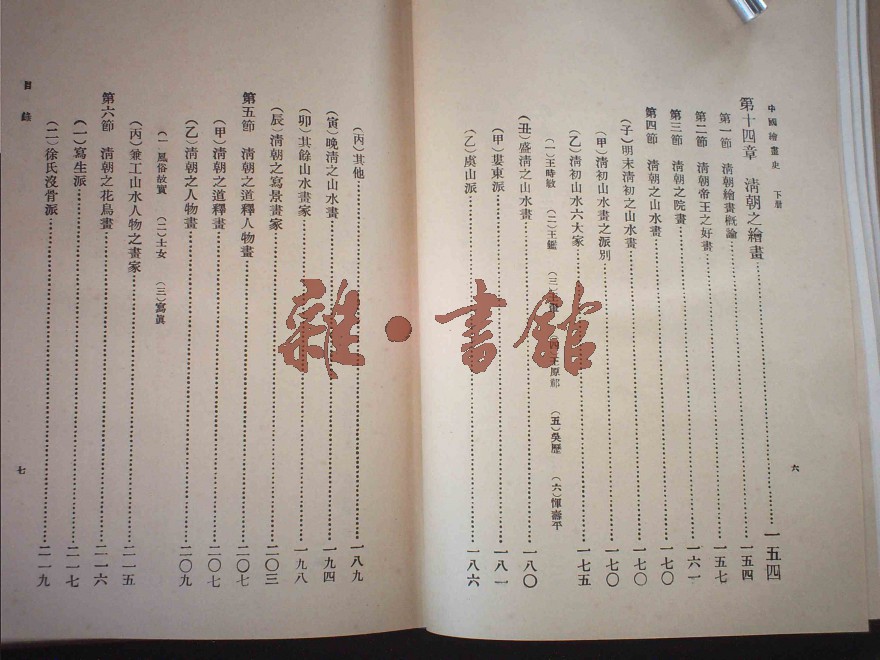 中國繪畫史 下册
第十四章 清朝之繪畫……一五四
第一節 清朝繪畫概論……一五四
第二節 清朝帝王之好畫……一五七
第三節 清朝之院畫……一六一
第四節 清朝之山水畫……一七〇
(子)明末清初之山水畫……一七〇
(甲)清初山水畫之派別……一七〇
(乙)清初山水六大家……一七五
(一)王時敏 (二)王鑑 (三)王翬 (四)王原祁 (五)吳歷 (六)惲壽平
(丑)盛清之山水畫……一八〇
(甲)婁東派……一八一
(乙)虞山派……一八六
六
(丙)其他……一八九
(寅)晚清之山水畫……一九四
(卯)其餘山水畫家……一九八
(辰)清朝之寫景畫家……二〇三
第五節 清朝之道釋人物畫……二〇七
(甲)清朝之道釋畫……二〇七
(乙)清朝之人物畫……二〇九
(一)風俗故實 (二)士女 (三)寫眞
(丙)兼工山水人物之畫家……二一五
第六節 清朝之花鳥畫……二一六
(一)寫生派……二一七
(二)徐氏沒骨派……二一九
目錄
七
雜·書館